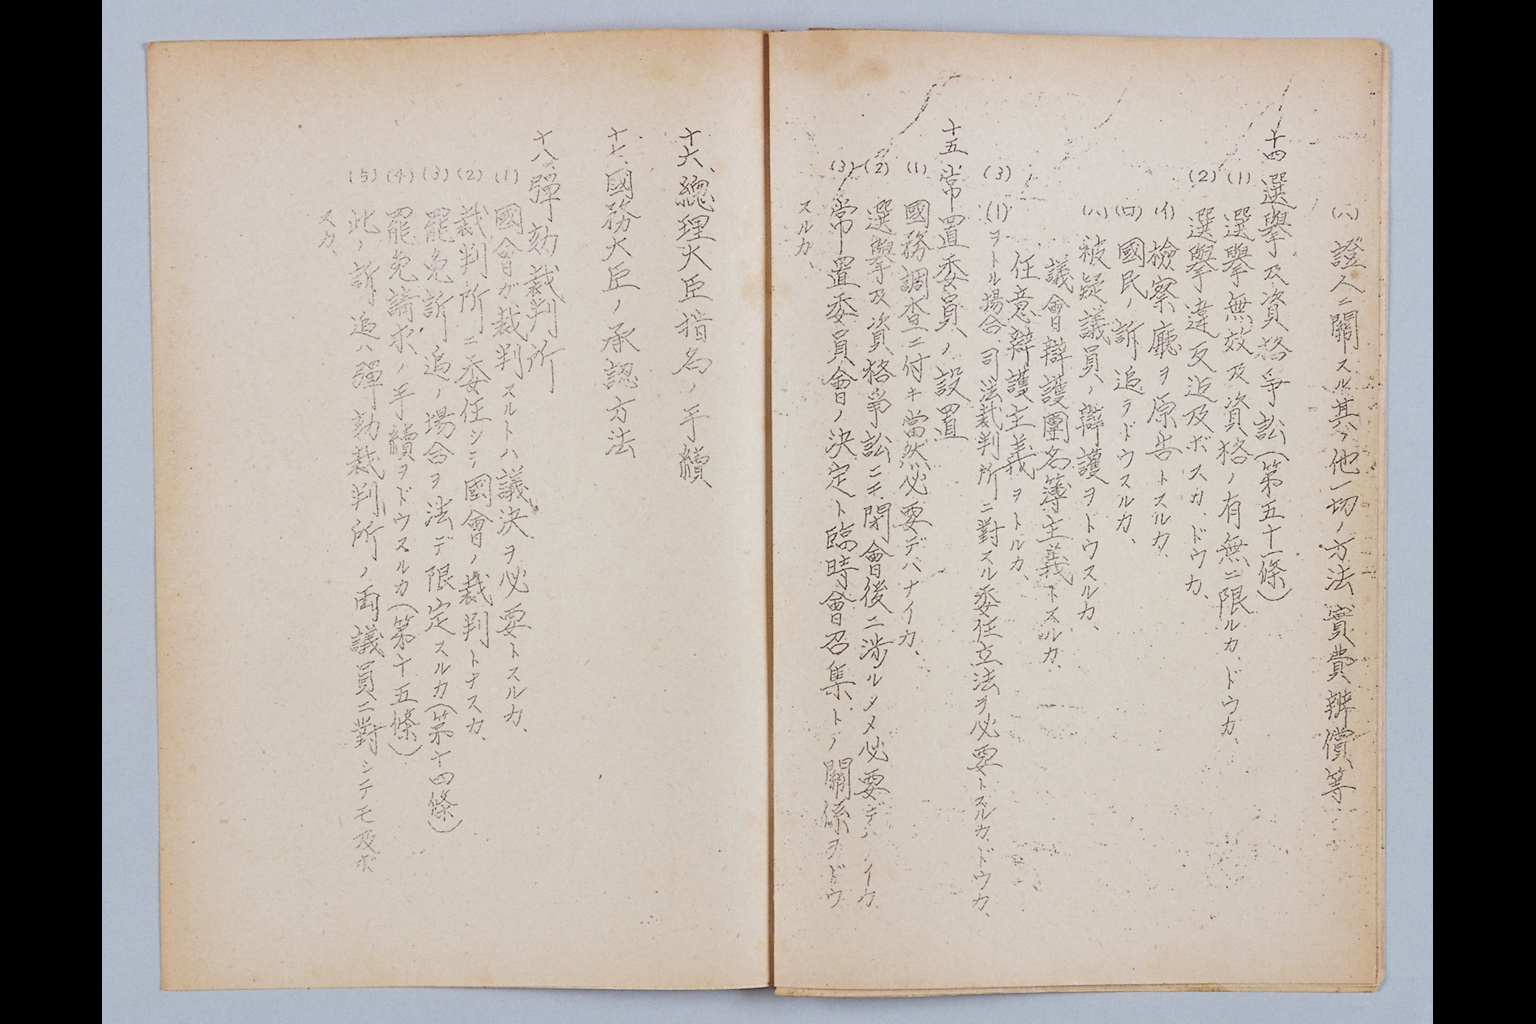 (ハ) 證人ニ關スル其ノ他一切ノ方法實費辨償等
十四 選擧及資格爭訟(第五十一條)
(1) 選擧無效及資格ノ有無ニ限ルカ、ドウカ、
(2) 選擧違反迄及ボスカ、ドウカ、
(イ) 檢察廳ヲ原告トスルカ、
(ロ) 國民ノ訴追ヲドウスルカ、
(ハ) 被疑議員ノ辯護ヲドウスルカ、
議會辯護團名簿主義トスルカ、
任意辯護主義ヲトルカ、
(3) (1)ヲトル場合、司法裁判所ニ對スル委任立法ヲ必要トスルカ、ドウカ、
十五 常置委員ノ設置
(1) 國務調査ニ付キ當然必要デハナイカ、
(2) 選擧及資格爭訟ニモ閉會後ニ涉ルタメ必要デハナイカ
(3) 常置委員會ノ決定ト臨時會召集トノ關係ヲドウ
スルカ、
十六、總理大臣指名ノ手續
十七、國務大臣ノ承認方法
十八、彈劾裁判所
(1) 國會ガ裁判スルトハ議決ヲ必要トスルカ、
(2) 裁判所ニ委任シテ國會ノ裁判トナスカ、
(3) 罷免訴追ノ場合ヲ法デ限定スルカ(第十四條)
(4) 罷免請求ノ手續ヲドウスルカ(第十五條)
(5) 此ノ訴追ハ彈劾裁判所ノ両議員ニ對シテモ及ボ
スカ、